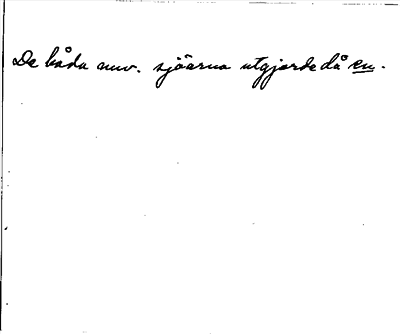 De båda nuv. sjöarna utgjorde då en.